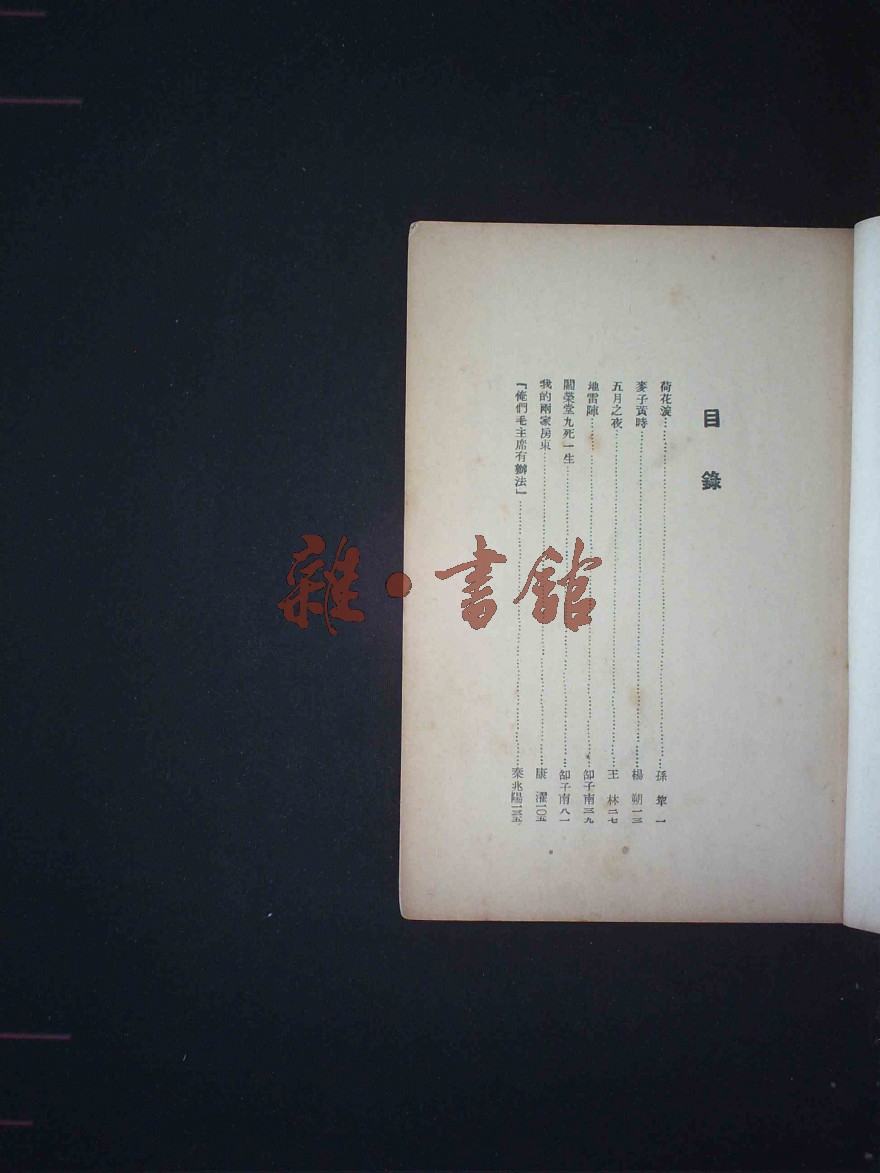 目錄
荷花淀 孫犂 一
麥子黃時 楊朔 一三
五月之夜 王林 二七
地雷陣 邵子南 三九
閻榮堂九死一生 邵子南 八一
我的兩家房東 康濯 一〇五
「俺們毛主席有辦法」 秦兆陽 一三五
雜·書館